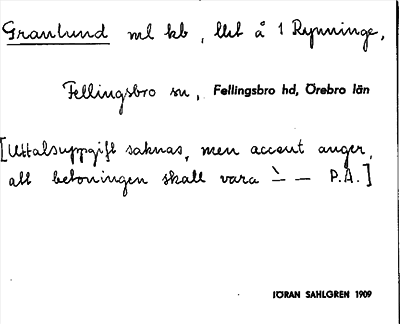 Granlund ml kb, lht å 1 Rynninge,
Fellingsbro sn, Fellingsbro hd, Örebro län
[Uttalsuppgift saknas, men accent anger,
att betoningen skall vara ⸌ — P.A.]
JÖRAN SAHLGREN 1909